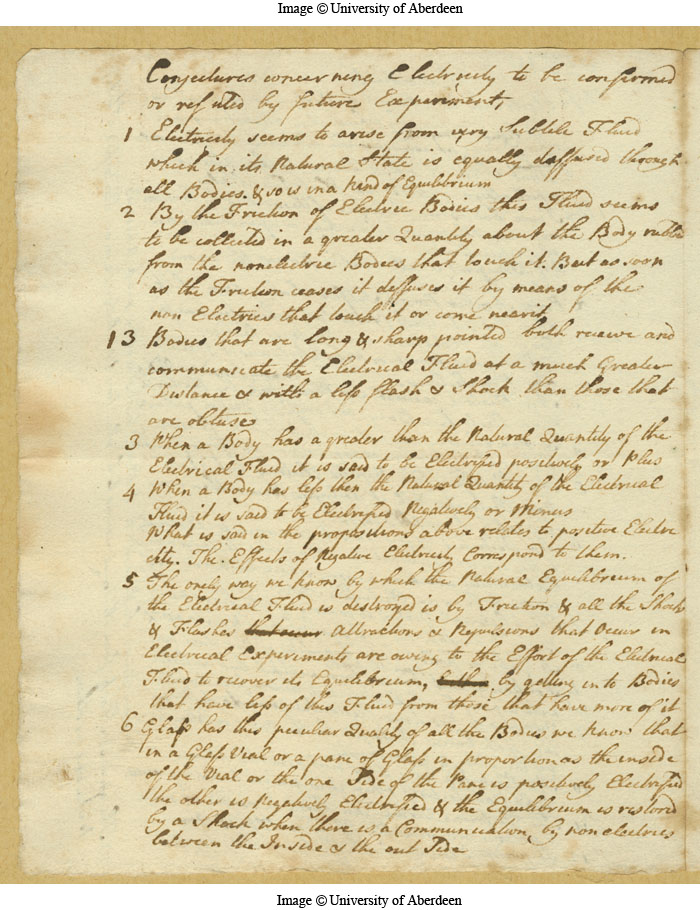 Image © University of Aberdeen
Conjectures concerning Electricity to be confirmed
or refuted by future Experiments
1 Electricity seems to arise from a very Subtile Fluid
which in its Natural State is equally diffused through
all Bodies. & so is in a kind of Equilibrium
2 By the Friction of Electric Bodies this Fluid seems
to be collected in a greater Quantity about the Body rubbd
from the nonelectric Bodies that touch it. But as soon
as the Friction ceases it diffuses it by means of the
non Electrics that touch it or come near it
13 Bodies that are long & sharp pointed both receive and
communicate the Electrical Fluid at a much Greater
Distance & with a less flash & Shock than those that
are obtuse
3 When a Body has a greater than the Natural Quantity of the
Electrical Fluid it is said to be Electrified positively or Plus
4 When a Body has less then the Natural Quantity of the Electrical
Fluid it is said to be Electrified Negatively or Minus
What is said in the propositions above relates to positive Electri
city. The Effects of Negative Electricity Correspond to them.
5 The onely way we know by which the Natural Equilibrium of
the Electrical Fluid is destroyed is by Friction & all the Shocks
& Flashes Attractions & Repulsions that Occur in
Electrical Experiments are owing to the Effort of the Electrical
Fluid to recover its Equilibrium, by getting in to Bodies
that have less of this Fluid from those that have more of it
6 Glass has this peculiar Quality of all the Bodies we know that
in a Glass Vial or a pane of Glass in proportion as the inside
of the Vial or the one Side of the Pane is positively Electrified
the other is Negatively Electrified & the Equilibrium is restored
by a Shock when there is a Communication by non electrics
between the Inside & the out Side
Image © University of Aberdeen